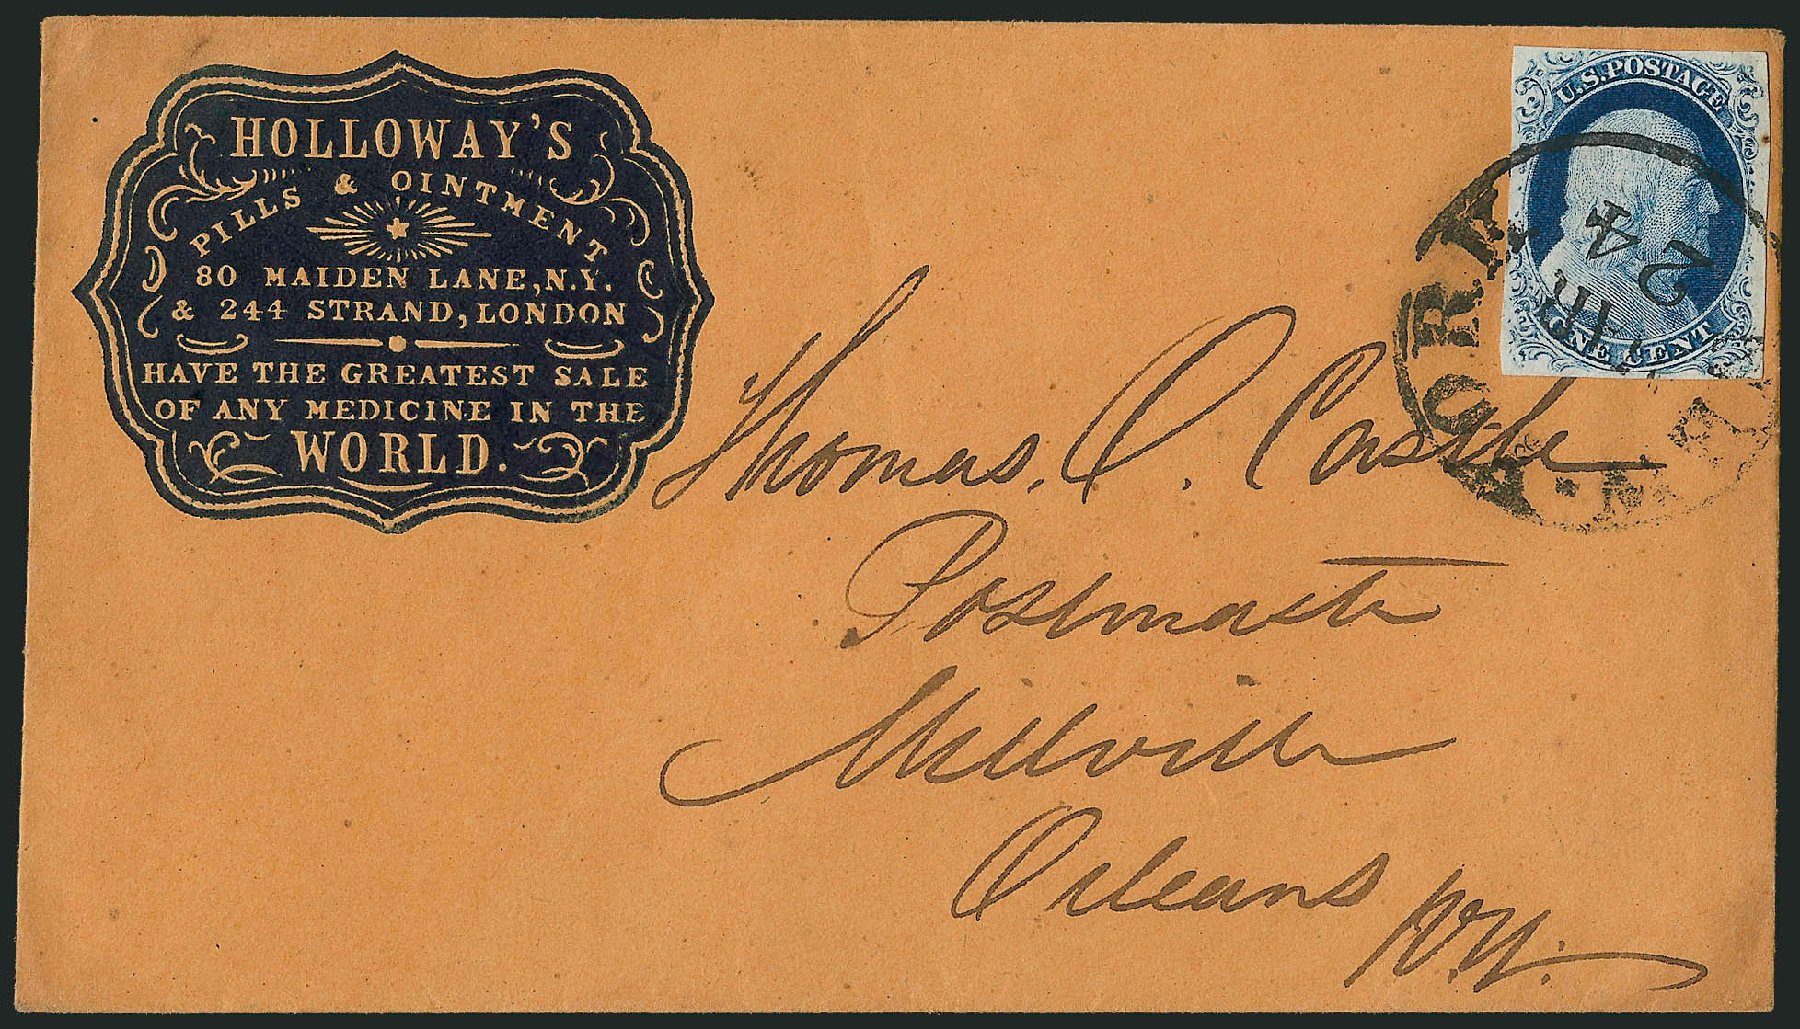 HOLLOWAY'S
PILLS & OINTMENT
80 MAIDEN LANE, N.Y.
& 244 STRAND, LONDON
HAVE THE GREATEST SALE
OF ANY MEDICINE IN THE
WORLD.
U.S. POSTAGE
ONE CENT
YORK
24
N.Y.
Thomas. O. Castle
Postmaster
Millville
Orleans N.Y.